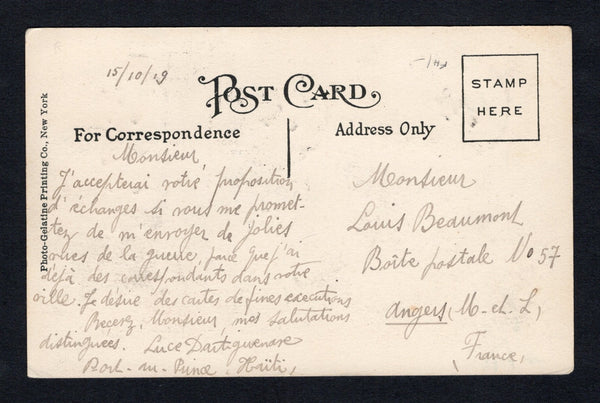 15/10/19
POST CARD
STAMP
HERE
For Correspondence
Address Only
Photo-Gelatine Printing Co., New York
Monsieur
J'accepterai votre proposition
d'échanges si vous me promet-
tez de m'envoyer de jolies
vues de la guerre, parce que j'ai
déjà des correspondants dans votre
ville. Je désire des cartes de fines exécutions
Recevez, Monsieur, mes salutations
distinguées. Luce Dartiguenave
Port-au-Prince, Haïti,
Monsieur
Louis Beaumont
Boîte postale No 57
Angers (M-et-L)
France,